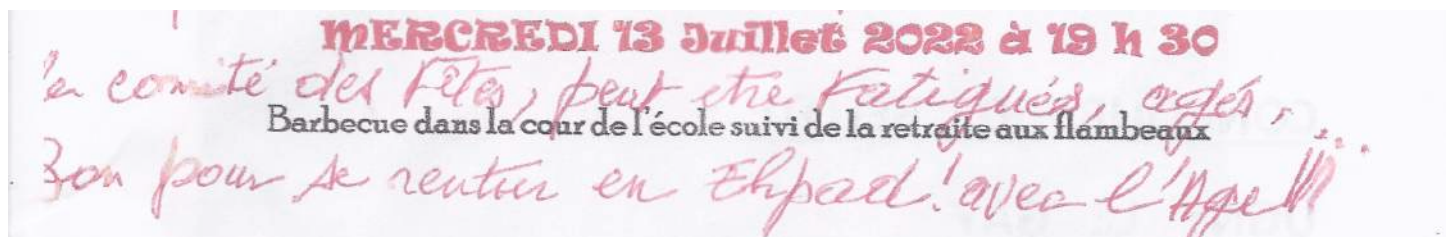 MERCREDI 13 Juillet 2022 à 19 h 30
comité des Fêtes, peut etre Fatigués, agés, ...
Barbecue dans la cour de l'école suivi de la retraite aux flambeaux
Bon pour se rentrer en Ehpad! avec l'Age!!!